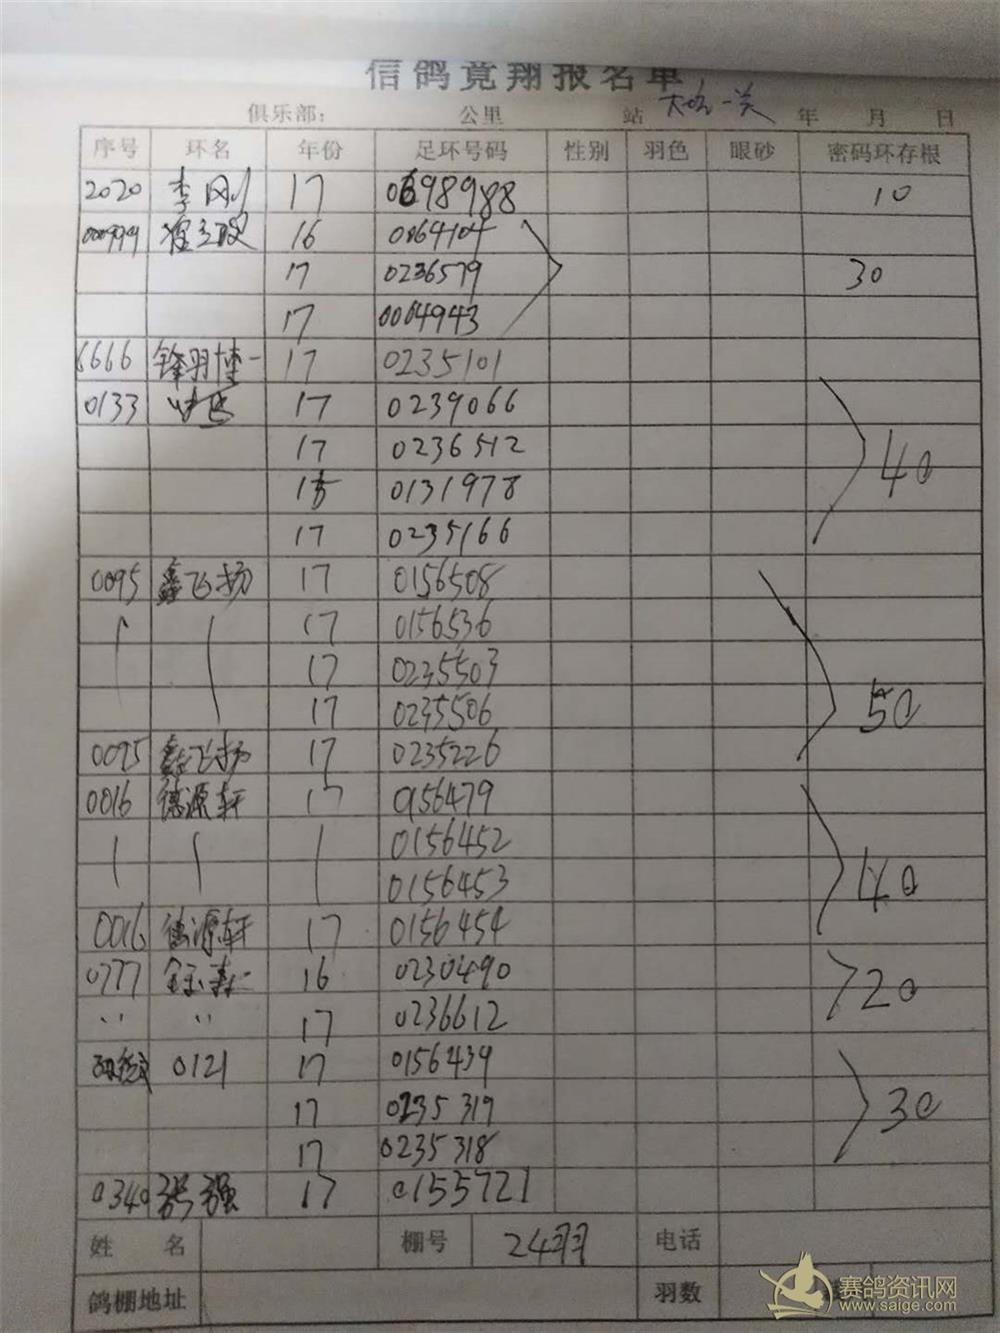 信鸽竞翔报名单
俱乐部: 公里 站 一关 年 月 日
序号 环名 年份 足环号码 性别 羽色 眼砂 密码环存根
2020 李刚 17 0698988 10
16 0064104
17 0236579 30
17 0004943
6666 17 0235101
0133 17 0239066
17 0236512 40
0131978
17 0235166
0095 鑫飞扬 17 0156508
17 0156536
17 0235503
17 0235506 50
0095 鑫飞扬 17 0235226
0016 德源轩 17 0156479
0156452
0156453 40
0016 德源轩 17 0156454
0777 16 0230490 20
〃 〃 17 0236612
0121 17 0156439
17 0235319 30
17 0235318
0340 张强 17 0155721
姓 名 棚号 24羽 电话
鸽棚地址 羽数
赛鸽资讯网
www.saige.com